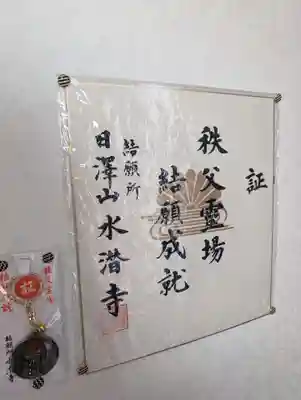 証
秩父霊場
結願成就
結願所
日澤山水潜寺
証